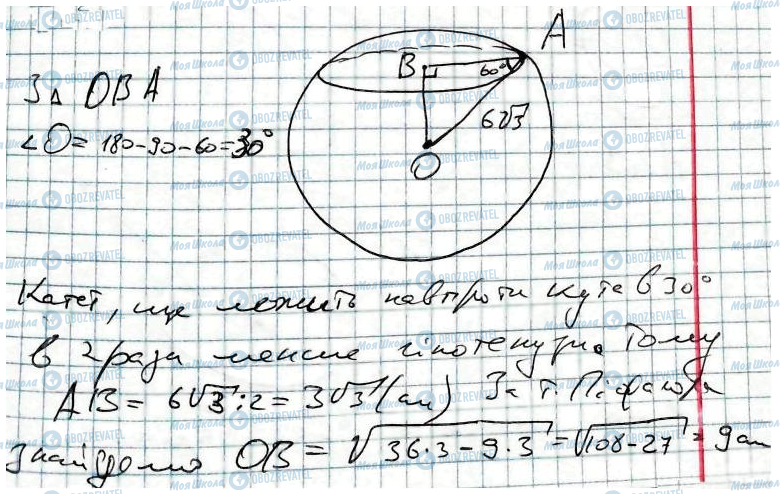 A
B 60°
З △ OBA
6√3
∠O = 180-90-60=30°
O
Катет, що лежить навпроти кута в 30°
в 2 рази менше гіпотенузи. Тому
AB = 6√3 : 2 = 3√3 (см) За т. Піфагора
знайдемо OB = √36·3 - 9·3 = √108-27 = 9 см